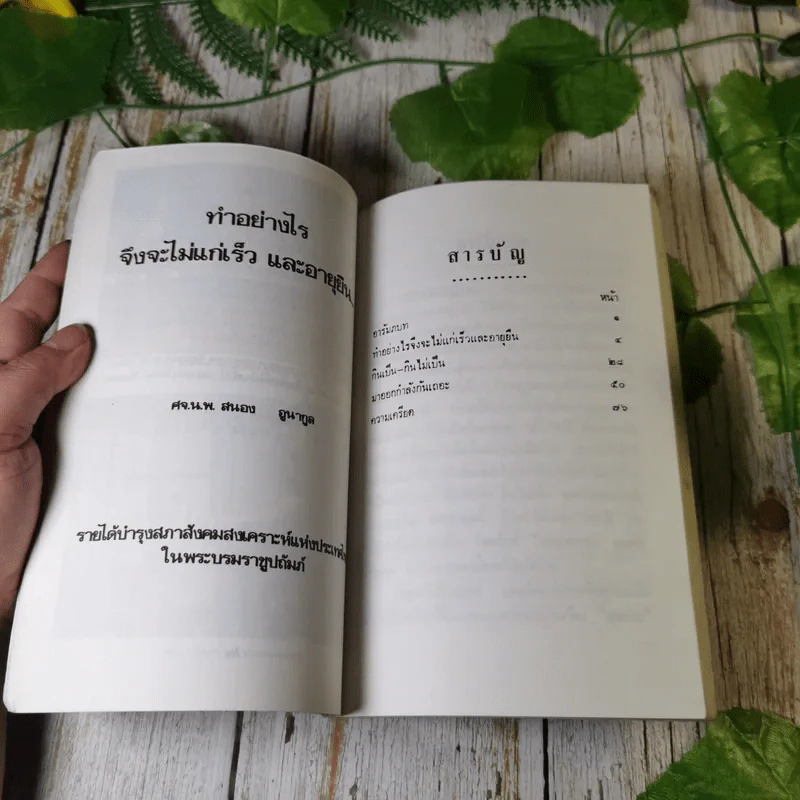 ทำอย่างไร
จึงจะไม่แก่เร็ว และอายุยืน
ศจ.น.พ. สนอง อูนากูล
รายได้บำรุงสภาสังคมสงเคราะห์แห่งประเทศไ
ในพระบรมราชูปถัมภ์
สารบัญ
...........
หน้า
อารัมภบท ๑
ทำอย่างไรจึงจะไม่แก่เร็วและอายุยืน ๔
กินเป็น-กินไม่เป็น ๒๘
มาออกกำลังกันเถอะ ๕๐
ความเครียด ๗๖